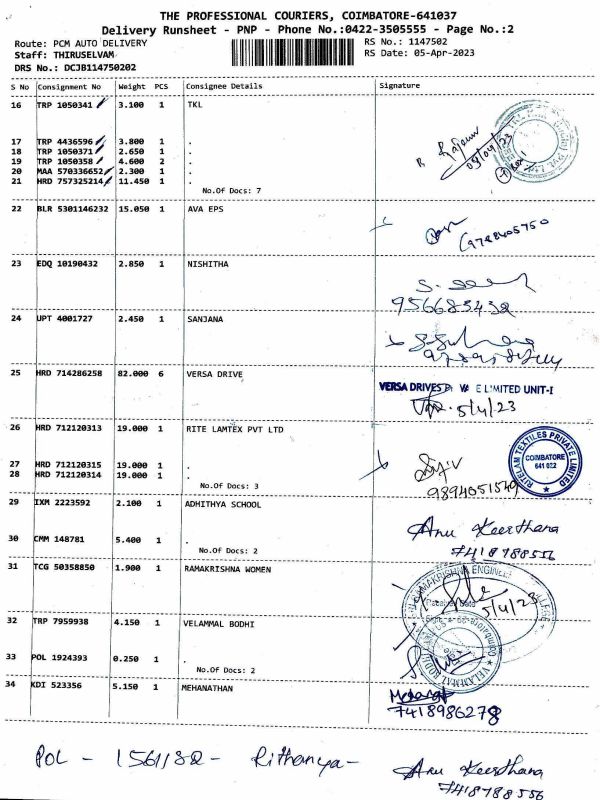 THE PROFESSIONAL COURIERS, COIMBATORE-641037
Delivery Runsheet - PNP - Phone No.:0422-3505555 - Page No.:2
Route: PCM AUTO DELIVERY RS No.: 1147502
Staff: THIRUSELVAM RS Date: 05-Apr-2023
DRS No.: DCJB114750202
S No Consignment No Weight PCS Consignee Details Signature
16 TRP 1050341 3.100 1 TKL
17 TRP 4436596 3.800 1 .
18 TRP 1050371 2.650 1 .
19 TRP 1050358 4.600 2 .
20 MAA 570336652 2.300 1 .
21 HRD 757325214 11.450 1 .
No.Of Docs: 7
22 BLR 5301146232 15.050 1 AVA EPS
9788405750
23 EDQ 10190432 2.850 1 NISHITHA
9566834
24 UPT 4001727 2.450 1 SANJANA
25 HRD 714286258 82.000 6 VERSA DRIVE
VERSA DRIVES E LIMITED UNIT-I
5/4/23
26 HRD 712120313 19.000 1 RITE LAMTEX PVT LTD
RITELAM TEXTILES PRIVATE LIMITED
COIMBATORE
641 022
27 HRD 712120315 19.000 1 .
28 HRD 712120314 19.000 1 .
No.Of Docs: 3
9894051549
29 IXM 2223592 2.100 1 ADHITHYA SCHOOL
Anu Keerthana
30 CMM 148781 5.400 1 .
7418788556
No.Of Docs: 2
31 TCG 50358850 1.900 1 RAMAKRISHNA WOMEN
5/4/23
32 TRP 7959938 4.150 1 VELAMMAL BODHI
33 POL 1924393 0.250 1 .
No.Of Docs: 2
34 KDI 523356 5.150 1 MEHANATHAN
7418986278
POL - 1561182 - Rithanya -
Anu Keerthana
7418788556